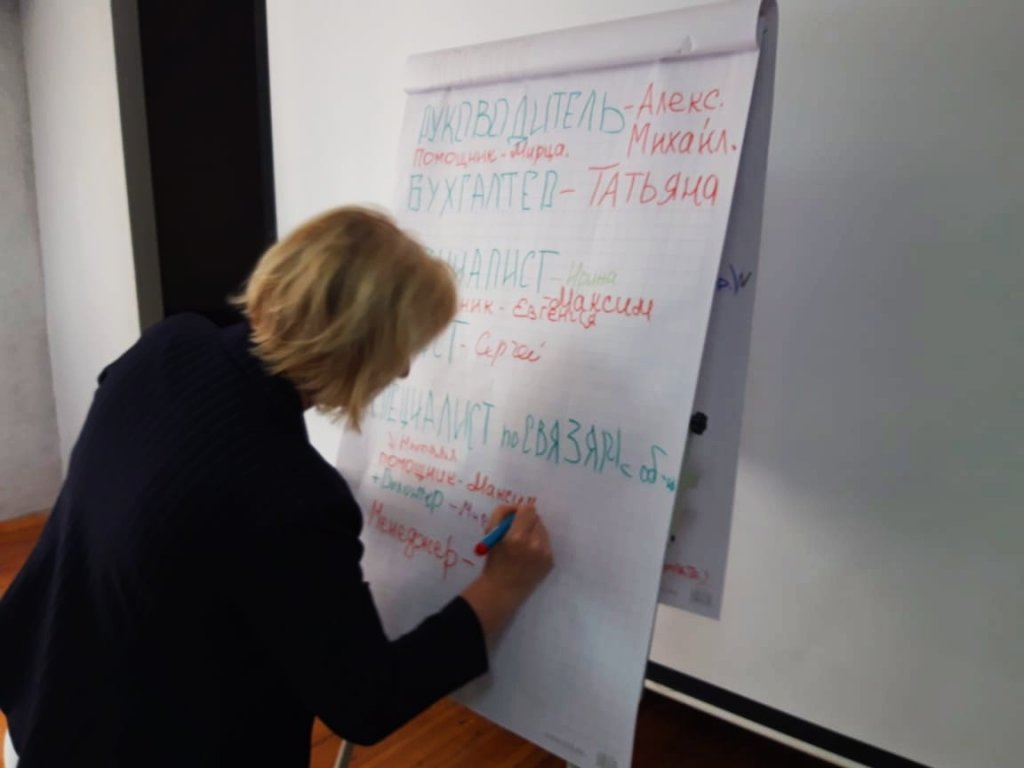 РУКОВОДИТЕЛЬ - Алекс.
Михаил.
помощник - Мирча.
БУХГАЛТЕР - ТАТЬЯНА
ИАЛИСТ - Ирина
- Максим
ник - Евгения
ИСТ - Сергей
СПЕЦИАЛИСТ по СВЯЗЯМ с об-
Наталья
помощник - Максим
+ Волонтёр -
Менеджер -